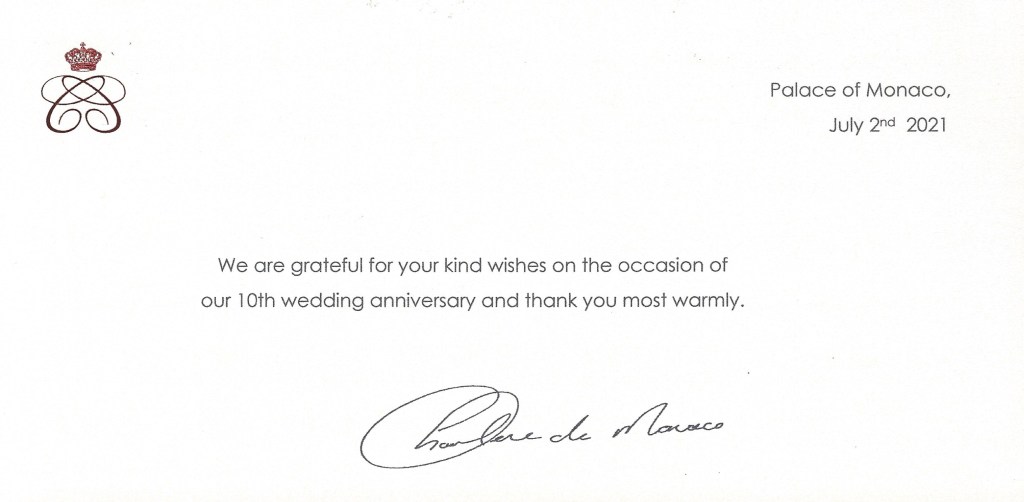 Palace of Monaco,
July 2nd 2021
We are grateful for your kind wishes on the occasion of
our 10th wedding anniversary and thank you most warmly.
Charlene de Monaco